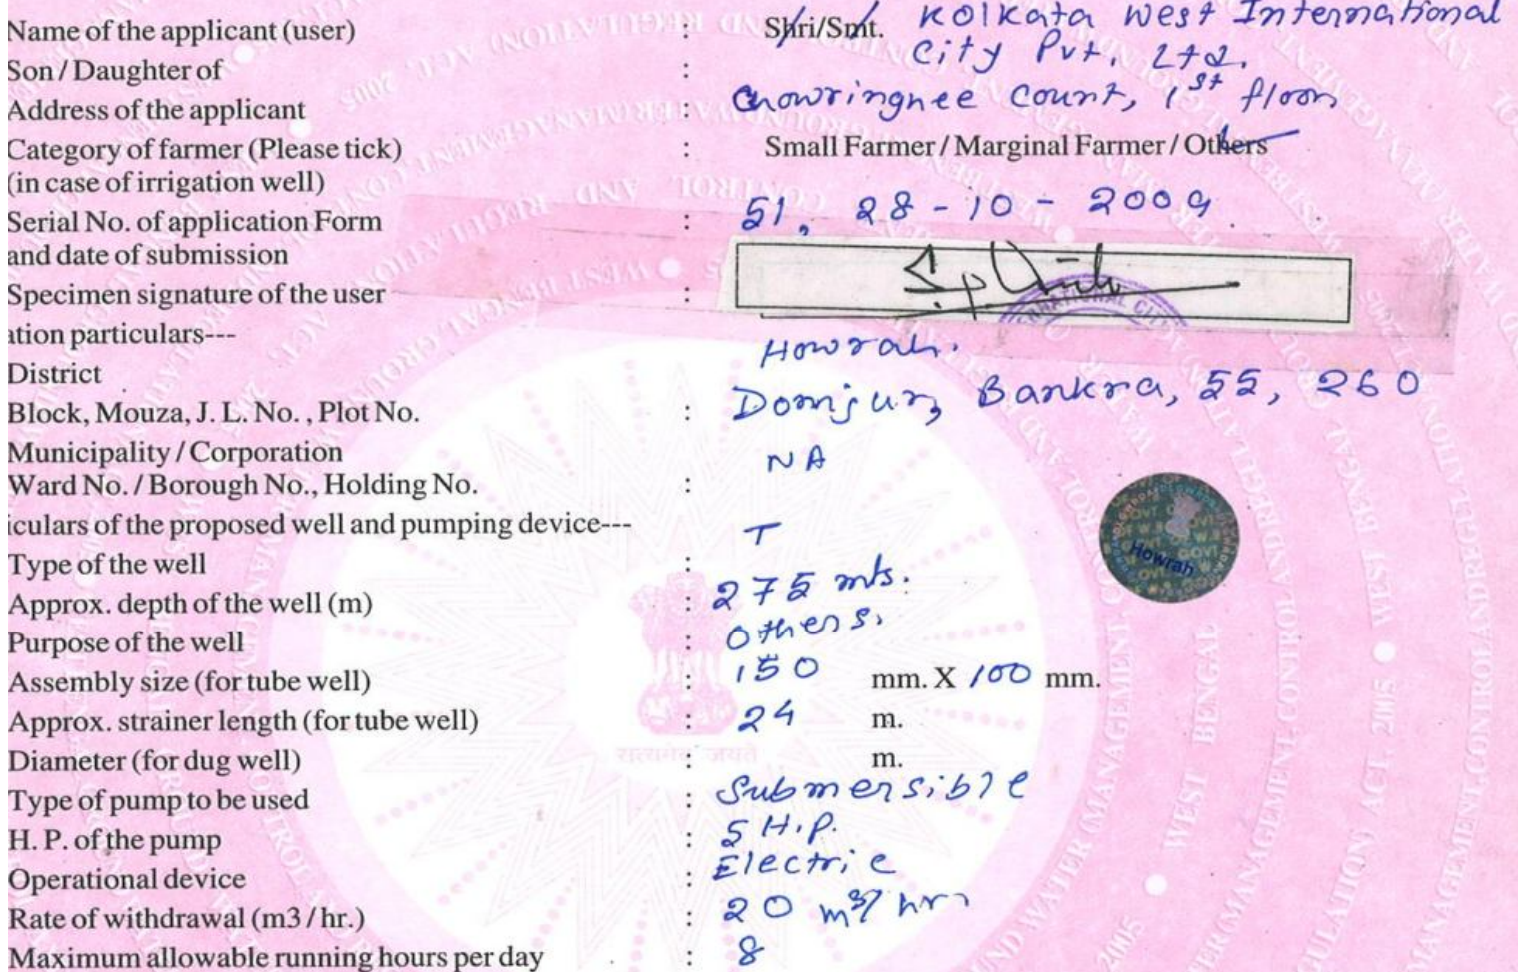 Name of the applicant (user) : Shri/Smt. Kolkata West International
City Pvt. Ltd.
Son / Daughter of :
Address of the applicant : Chowringhee Court, 1st floor
Category of farmer (Please tick) : Small Farmer / Marginal Farmer / Others
(in case of irrigation well)
Serial No. of application Form : 51, 28-10-2009
and date of submission
Specimen signature of the user :
ation particulars---
District Howrah.
Block, Mouza, J. L. No. , Plot No. : Domjur, Bankra, 55, 260
Municipality / Corporation NA
Ward No. / Borough No., Holding No. :
iculars of the proposed well and pumping device---
Type of the well : T
Approx. depth of the well (m) : 275 mts.
Purpose of the well : Others.
Assembly size (for tube well) : 150 mm. X 100 mm.
Approx. strainer length (for tube well) : 24 m.
Diameter (for dug well) : m.
Type of pump to be used : Submersible
H. P. of the pump : 5 H.P.
Operational device : Electric
Rate of withdrawal (m3 / hr.) : 20 m3/ hr
Maximum allowable running hours per day : 8
Howrah
सत्यमेव जयते